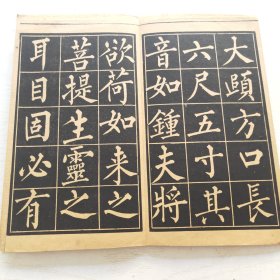 大頤方口長
六尺五寸其
音如鍾夫將
欲荷如来之
菩提生靈之
耳目固必有